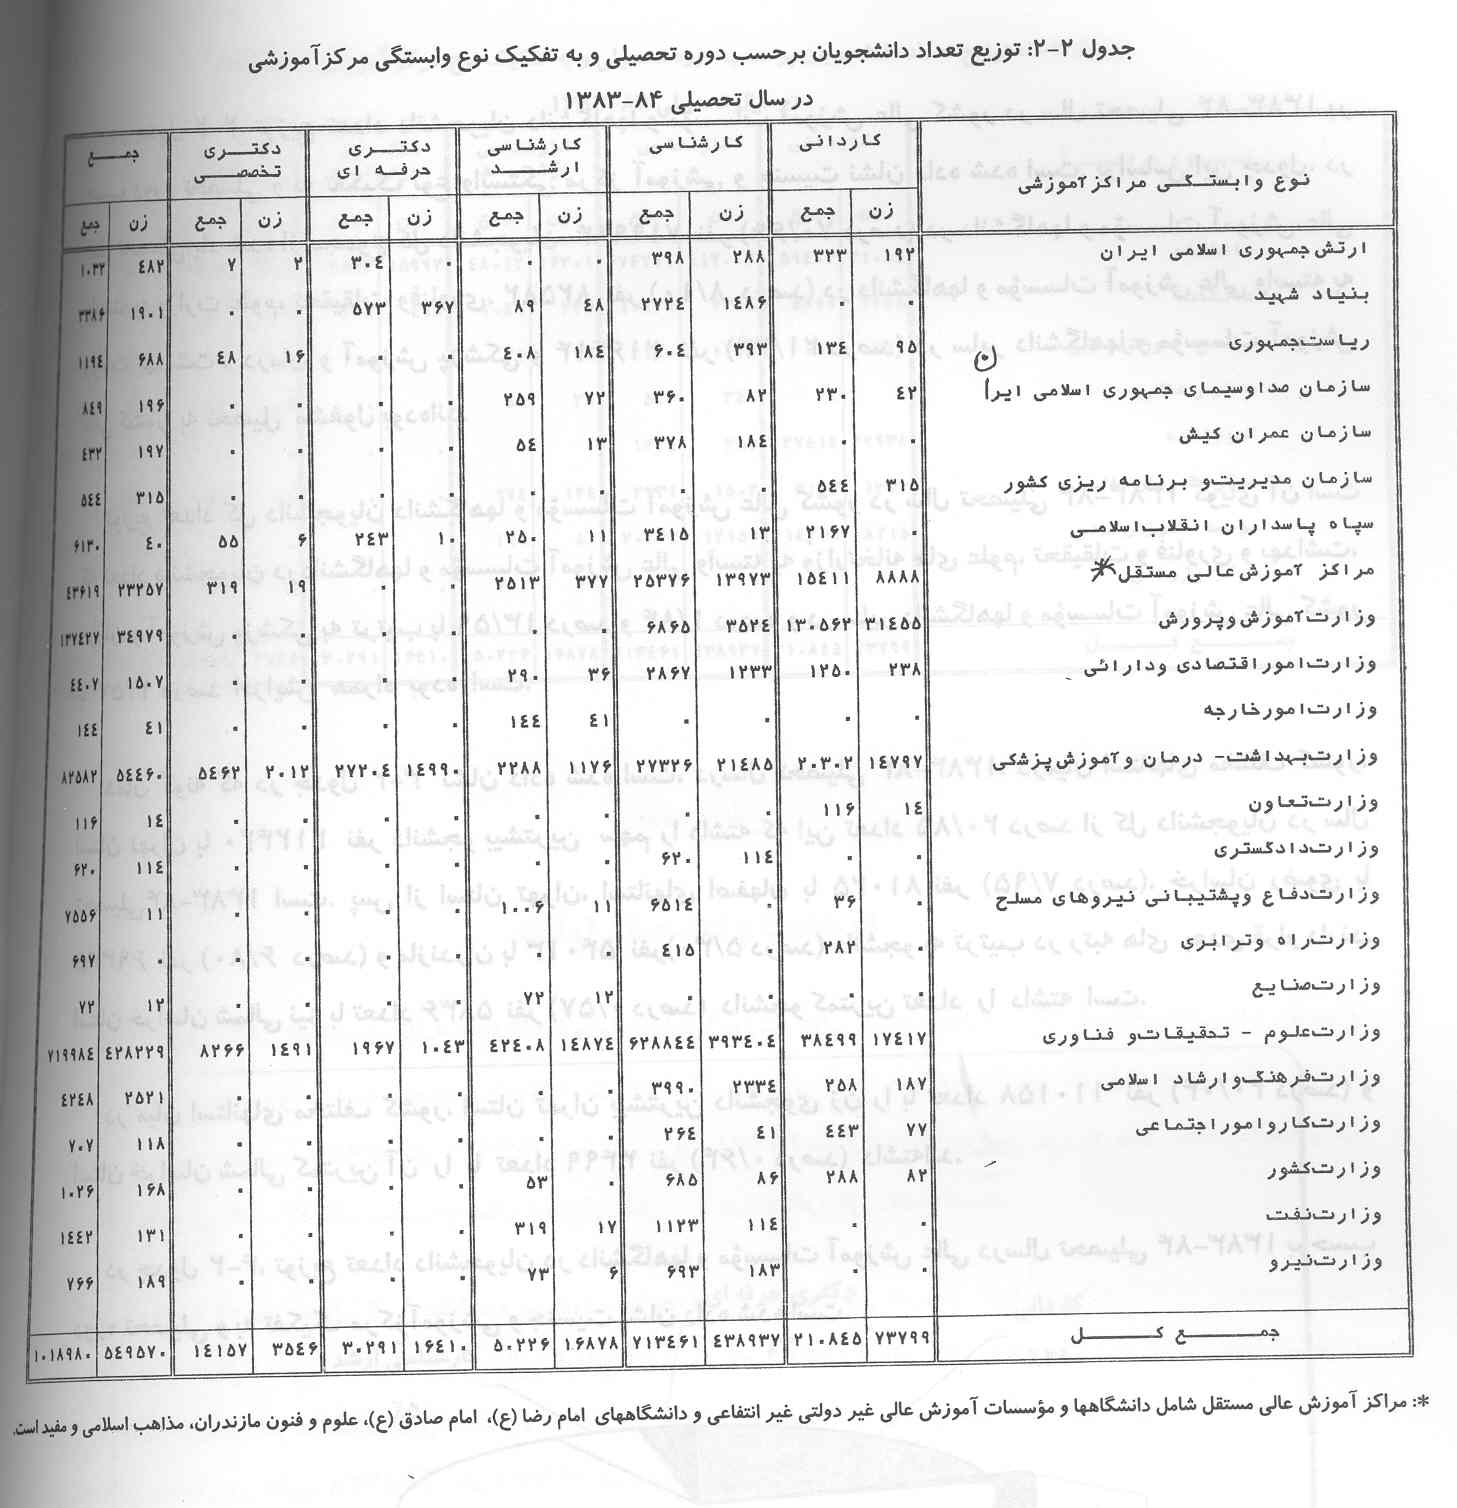 جدول ۲-۲: توزیع تعداد دانشجویان برحسب دوره تحصیلی و به تفکیک نوع وابستگی مرکز آموزشی
در سال تحصیلی ۸۴-۱۳۸۳
نوع وابستگی مراکز آموزشی کاردانی کارشناسی کارشناسی ارشد دکتری حرفه ای دکتری تخصصی جمع
زن جمع زن جمع زن جمع زن جمع زن جمع زن جمع
ارتش جمهوری اسلامی ایران ۱۹۲ ۳۲۳ ۲۸۸ ۳۹۸ ۰ ۰ ۰ ۳۰۴ ۲ ۷ ۴۸۲ ۱۰۳۲
بنیاد شهید ۰ ۰ ۱۴۸۶ ۲۷۲۴ ۴۸ ۸۹ ۳۶۷ ۵۷۳ ۰ ۰ ۱۹۰۱ ۳۳۸۶
ریاست جمهوری ۹۵ ۱۳۴ ۳۹۳ ۶۰۴ ۱۸۴ ۴۰۸ ۰ ۰ ۱۶ ۴۸ ۶۸۸ ۱۱۹۴
سازمان صداوسیمای جمهوری اسلامی ایران ۴۲ ۲۳۰ ۸۲ ۳۶۰ ۷۲ ۲۵۹ ۰ ۰ ۰ ۰ ۱۹۶ ۸۴۹
سازمان عمران کیش ۰ ۰ ۱۸۴ ۳۷۸ ۱۳ ۵۴ ۰ ۰ ۰ ۰ ۱۹۷ ۴۳۲
سازمان مدیریت و برنامه ریزی کشور ۳۱۵ ۵۴۴ ۰ ۰ ۰ ۰ ۰ ۰ ۰ ۰ ۳۱۵ ۵۴۴
سپاه پاسداران انقلاب اسلامی ۰ ۲۱۶۷ ۱۳ ۳۴۱۵ ۱۱ ۲۵۰ ۱۰ ۲۴۳ ۶ ۵۵ ۴۰ ۶۱۳۰
مراکز آموزش عالی مستقل* ۸۸۸۸ ۱۵۴۱۱ ۱۳۹۷۳ ۲۵۳۷۶ ۳۷۷ ۲۵۱۳ ۰ ۰ ۱۹ ۳۱۹ ۲۳۲۵۷ ۴۳۶۱۹
وزارت آموزش و پرورش ۳۱۴۵۵ ۱۳۰۵۶۲ ۳۵۲۴ ۶۸۶۵ ۰ ۰ ۰ ۰ ۰ ۰ ۳۴۹۷۹ ۱۳۷۴۲۷
وزارت امور اقتصادی و دارائی ۲۳۸ ۱۲۵۰ ۱۲۳۳ ۲۸۶۷ ۳۶ ۲۹۰ ۰ ۰ ۰ ۰ ۱۵۰۷ ۴۴۰۷
وزارت امور خارجه ۰ ۰ ۰ ۰ ۴۱ ۱۴۴ ۰ ۰ ۰ ۰ ۴۱ ۱۴۴
وزارت بهداشت- درمان و آموزش پزشکی ۱۴۷۹۷ ۲۰۳۰۲ ۲۱۴۸۵ ۲۷۳۲۶ ۱۱۷۶ ۲۲۸۸ ۱۴۹۹۰ ۲۷۲۰۴ ۲۰۱۲ ۵۴۶۲ ۵۴۴۶۰ ۸۲۵۸۲
وزارت تعاون ۱۴ ۱۱۶ ۰ ۰ ۰ ۰ ۰ ۰ ۰ ۰ ۱۴ ۱۱۶
وزارت دادگستری ۰ ۰ ۱۱۴ ۶۲۰ ۰ ۰ ۰ ۰ ۰ ۰ ۱۱۴ ۶۲۰
وزارت دفاع و پشتیبانی نیروهای مسلح ۰ ۳۶ ۰ ۶۵۱۴ ۱۱ ۱۰۰۶ ۰ ۰ ۰ ۰ ۱۱ ۷۵۵۶
وزارت راه و ترابری ۰ ۲۸۲ ۰ ۴۱۵ ۰ ۰ ۰ ۰ ۰ ۰ ۰ ۶۹۷
وزارت صنایع ۰ ۰ ۰ ۰ ۱۲ ۷۲ ۰ ۰ ۰ ۰ ۱۲ ۷۲
وزارت علوم - تحقیقات و فناوری ۱۷۴۱۷ ۳۸۴۹۹ ۳۹۳۴۰۴ ۶۲۸۸۴۴ ۱۴۸۷۴ ۴۲۴۰۸ ۱۰۴۳ ۱۹۶۷ ۱۴۹۱ ۸۲۶۶ ۴۲۸۲۲۹ ۷۱۹۹۸۴
وزارت فرهنگ و ارشاد اسلامی ۱۸۷ ۲۵۸ ۲۳۳۴ ۳۹۹۰ ۰ ۰ ۰ ۰ ۰ ۰ ۲۵۲۱ ۴۲۴۸
وزارت کار و امور اجتماعی ۷۷ ۴۴۳ ۴۱ ۲۶۴ ۰ ۰ ۰ ۰ ۰ ۰ ۱۱۸ ۷۰۷
وزارت کشور ۸۲ ۲۸۸ ۸۶ ۶۸۵ ۰ ۵۳ ۰ ۰ ۰ ۰ ۱۶۸ ۱۰۲۶
وزارت نفت ۰ ۰ ۱۱۴ ۱۱۲۳ ۱۷ ۳۱۹ ۰ ۰ ۰ ۰ ۱۳۱ ۱۴۴۲
وزارت نیرو ۰ ۰ ۱۸۳ ۶۹۳ ۶ ۷۳ ۰ ۰ ۰ ۰ ۱۸۹ ۷۶۶
جمع کل ۷۳۷۹۹ ۲۱۰۸۴۵ ۴۳۸۹۳۷ ۷۱۳۴۶۱ ۱۶۸۷۸ ۵۰۲۲۶ ۱۶۴۱۰ ۳۰۲۹۱ ۳۵۴۶ ۱۴۱۵۷ ۵۴۹۵۷۰ ۱۰۱۸۹۸۰
*: مراکز آموزش عالی مستقل شامل دانشگاهها و مؤسسات آموزش عالی غیر دولتی غیر انتفاعی و دانشگاههای امام رضا (ع)، امام صادق (ع)، علوم و فنون مازندران، مذاهب اسلامی و مفید است.